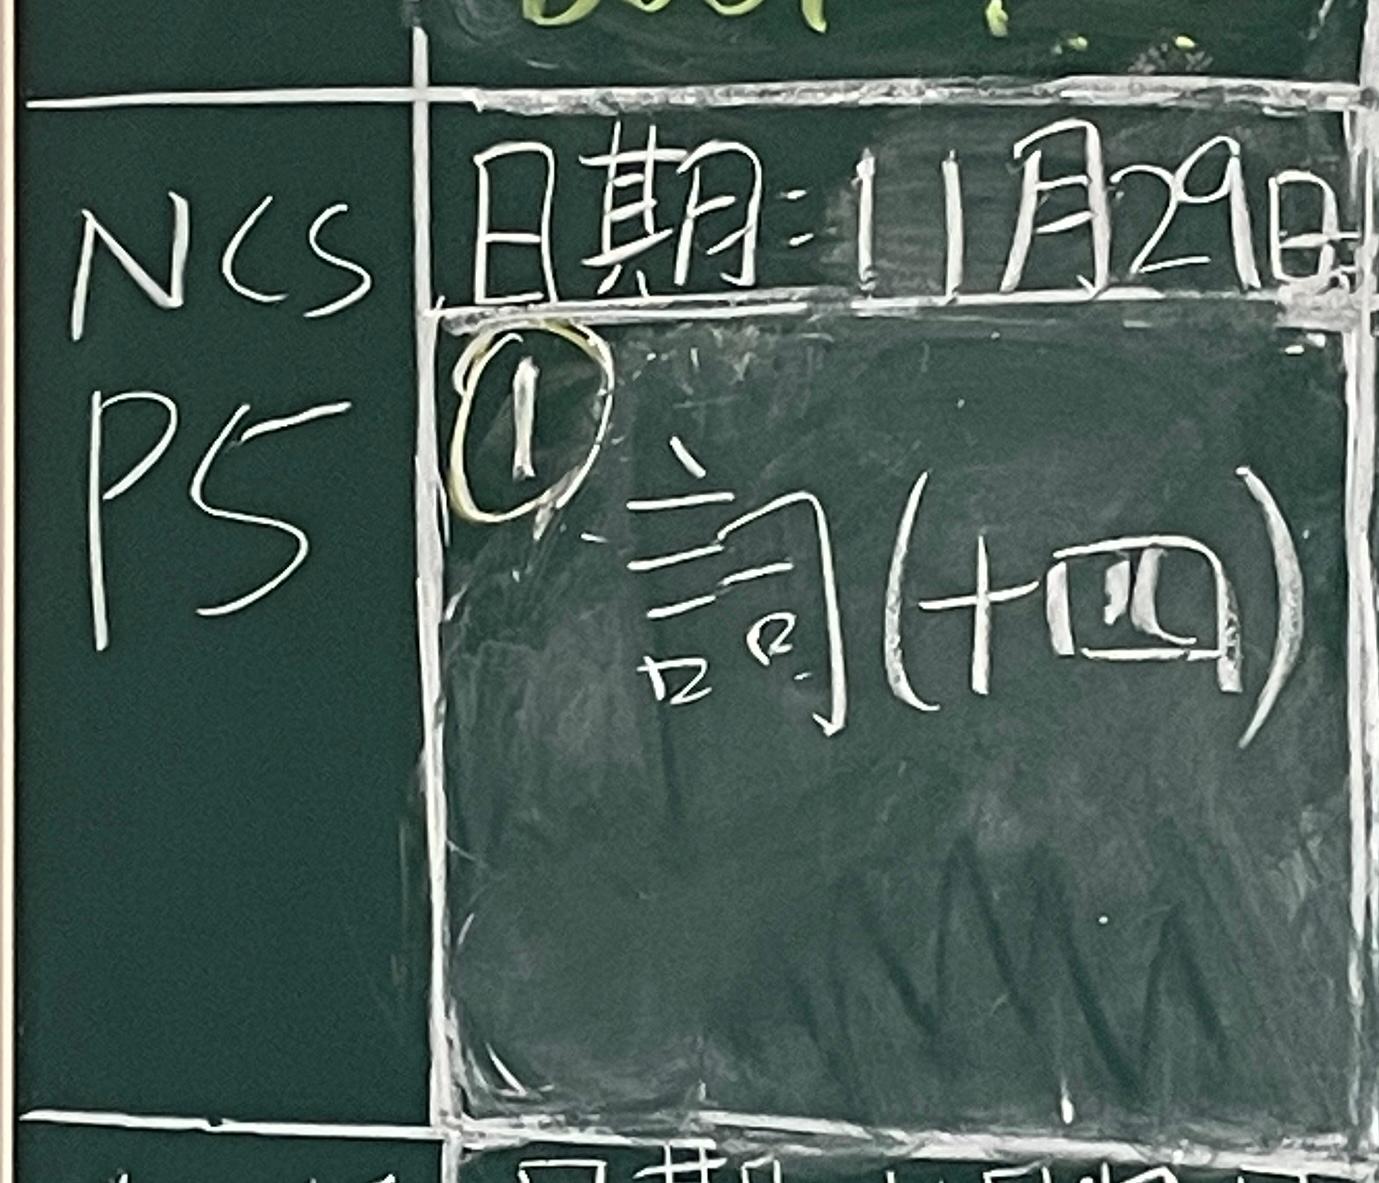 NCS
P5
日期:11月29日
①
詞(十四)
日期